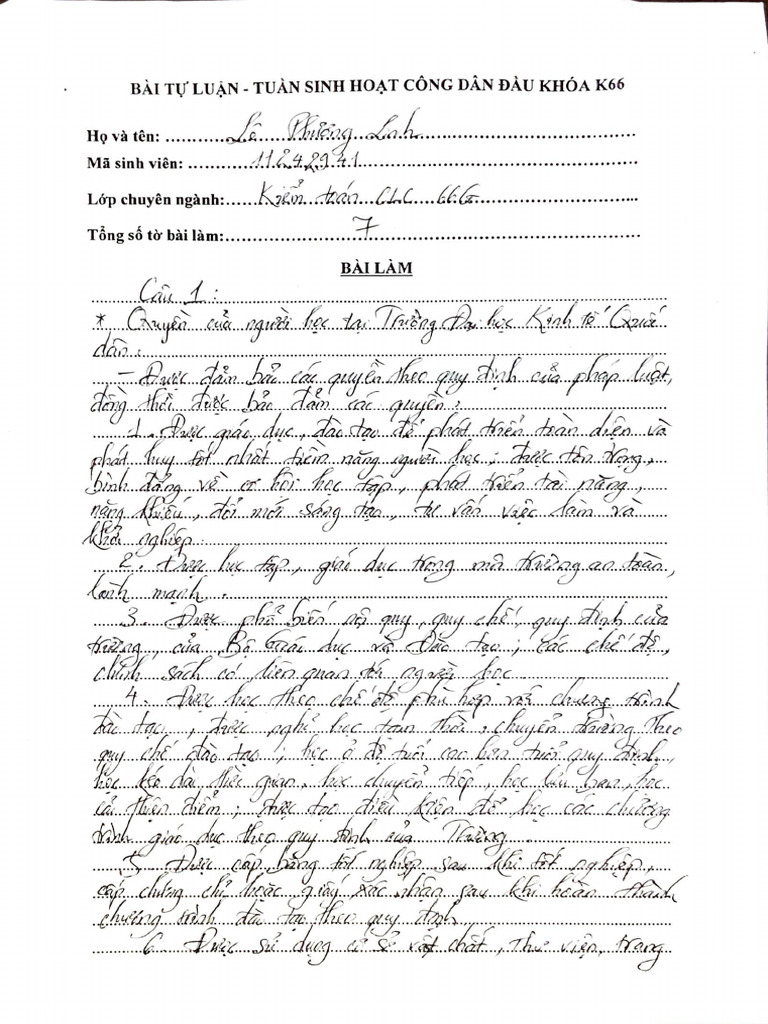 BÀI TỰ LUẬN - TUẦN SINH HOẠT CÔNG DÂN ĐẦU KHÓA K66
Họ và tên: Lê Phương Linh
Mã sinh viên: 11242941
Lớp chuyên ngành: Kiểm toán CLC 66G
Tổng số tờ bài làm: 7
BÀI LÀM
Câu 1:
* Quyền của người học tại Trường Đại học Kinh tế Quốc
dân:
- Được đảm bảo các quyền theo quy định của pháp luật,
đồng thời được bảo đảm các quyền:
1. Được giáo dục, đào tạo để phát triển toàn diện và
phát huy tốt nhất tiềm năng người học; được tôn trọng,
bình đẳng về cơ hội học tập, phát triển tài năng,
năng khiếu, đổi mới sáng tạo, tư vấn việc làm và
khởi nghiệp.
2. Được học tập, giáo dục trong môi trường an toàn,
lành mạnh.
3. Được phổ biến nội quy, quy chế, quy định của
trường, của Bộ Giáo dục và Đào tạo; các chế độ,
chính sách có liên quan tới người học
4. Được học theo chế độ phù hợp với chương trình
đào tạo, được nghỉ học tạm thời, chuyển trường theo
quy chế đào tạo; học ở độ tuổi cao hơn tuổi quy định,
học kéo dài thời gian, học chuyển tiếp, học lâu hơn, học
cải thiện điểm; được tạo điều kiện để học các chương
trình giáo dục theo quy định của Trường
5. Được cấp bằng tốt nghiệp sau khi tốt nghiệp,
cấp chứng chỉ hoặc giấy xác nhận sau khi hoàn thành
chương trình đào tạo theo quy định
6. Được sử dụng cơ sở vật chất, thư viện, trang